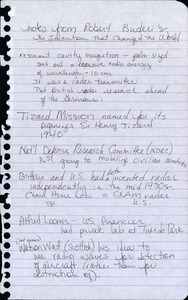 notes from Robert Buderi's
the Invention that Changed the World
resonant cavity magnetron - palm-sized
sent out microwave radio energy
of wavelength = 10 cm
It was a radar transmitter
Put British radar research ahead
of the Germans.
Tizard Mission named for its
organizer Sir Henry Tizard
1940
Nat'l Defense Research Committee (NDRC)
US going to mobilize civilian scientists
Britain and U.S. had invented radar
independently in the mid 1930s.
Chain Home Low = CXAM radar
Alfred Loomis - US financier
had private lab at Tuxedo Park
Watson Watt (Scottish) was idea to
use radio waves for detection
of aircraft (rather than for
destruction of).